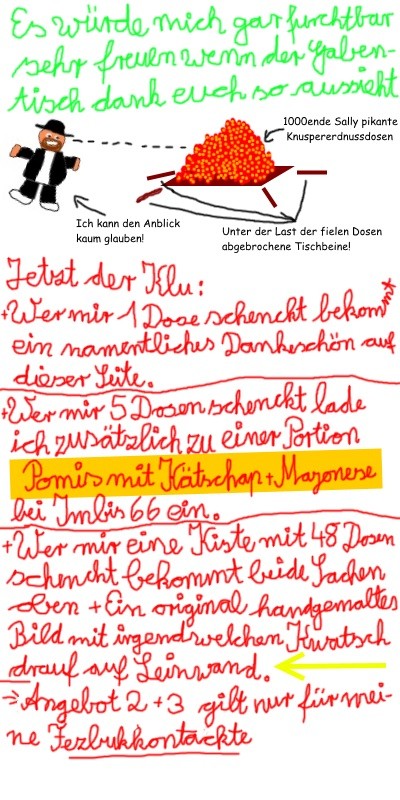 Es würde mich gar furchtbar
sehr freuen wenn der Gaben-
tisch dank euch so aussieht
1000ende Sally pikante
Knuspererdnussdosen
Ich kann den Anblick
kaum glauben!
Unter der Last der fielen Dosen
abgebrochene Tischbeine!
Jetzt der Klu:
+Wer mir 1 Dose schenckt bekommt
ein namentliches Dankeschön auf
dieser Seite.
+Wer mir 5 Dosen schenckt lade
ich zusätzlich zu einer Portion
Pomis mit Kätschap + Mayonese
bei Imbis 66 ein.
+Wer mir eine Kiste mit 48 Dosen
schenckt bekommt beide Sachen
oben + Ein original handgemaltes
Bild mit irgendwelchen Kwatsch
drauf auf Leinwand.
⇒Angebot 2 + 3 gilt nur für mei-
ne Fezbukkontackte